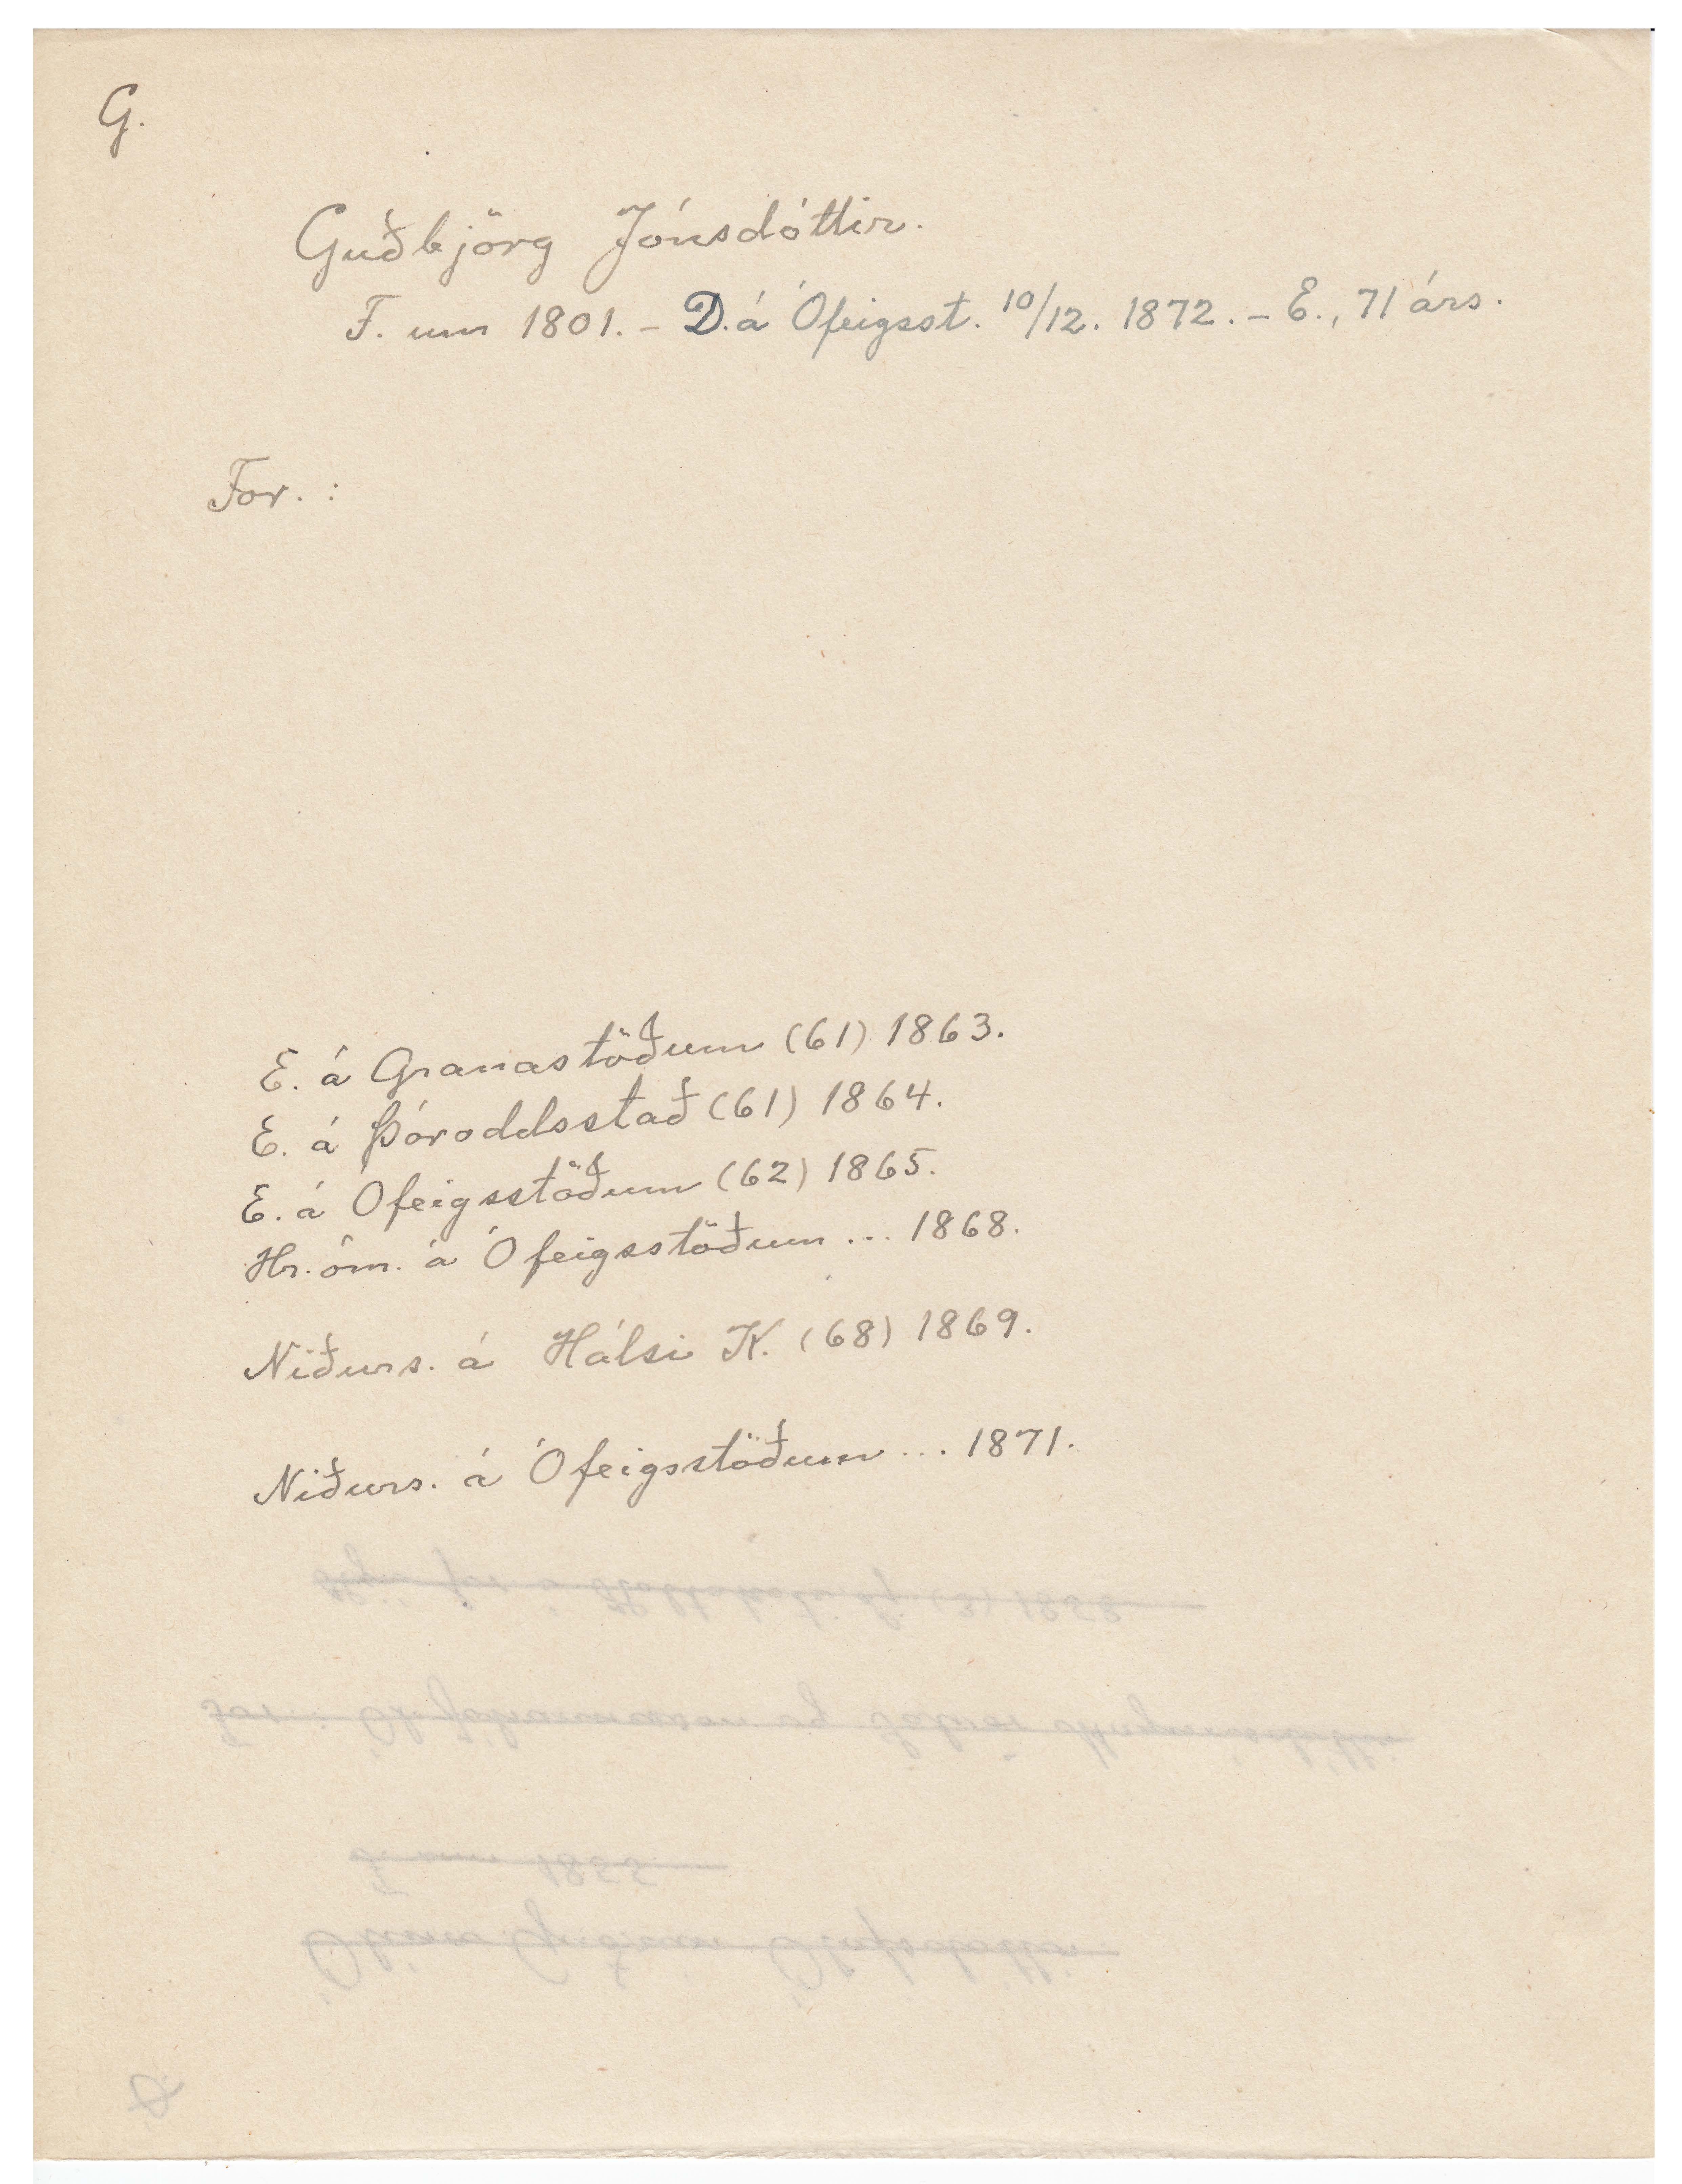 G.
Guðbjörg Jónsdóttir.
F. um 1801. - D. á Ófeigsst. 10/12. 1872. - E., 71 árs.
For. :
E. á Granastöðum (61) 1863.
E. á Þóroddsstað (61) 1864.
E. á Ófeigsstöðum (62) 1865.
Hr. óm. á Ófeigsstöðum ... 1868.
Niðurs. á Hálsi K. (68) 1869.
Niðurs. á Ófeigsstöðum ... 1871.